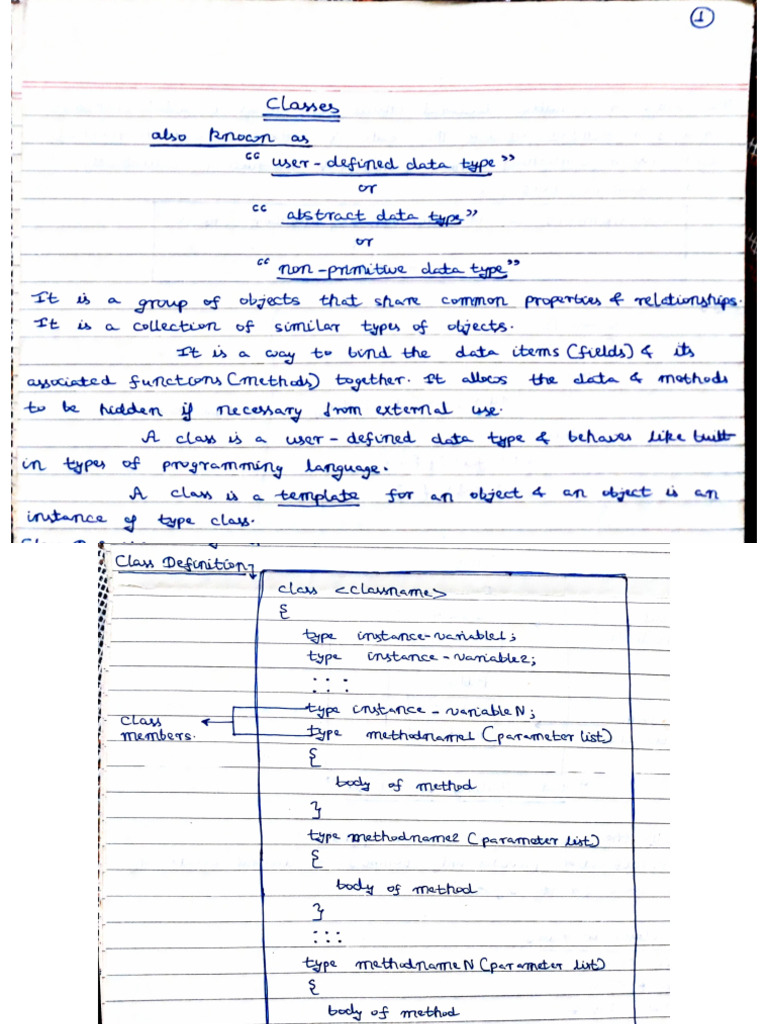 1
Classes
also known as
"user-defined data type"
or
"abstract data type"
or
"non-primitive data type"
It is a group of objects that share common properties & relationships.
It is a collection of similar types of objects.
It is a way to bind the data items (fields) & its
associated functions (methods) together. It allows the data & methods
to be hidden if necessary from external use.
A class is a user-defined data type & behaves like built-
in types of programming language.
A class is a template for an object & an object is an
instance of type class.
Class Definition
class <classname>
{
type instance-variable1;
type instance-variable2;
: : :
type instance-variableN;
Class
members.
type methodname1 (parameter list)
{
body of method
}
type methodname2 (parameter list)
{
body of method
}
: : :
type methodnameN (parameter list)
{
body of method